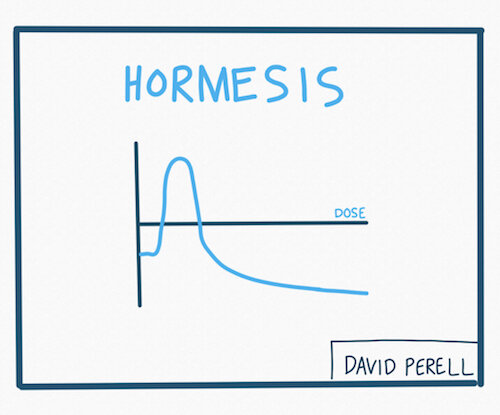 HORMESIS
DOSE
DAVID PERELL